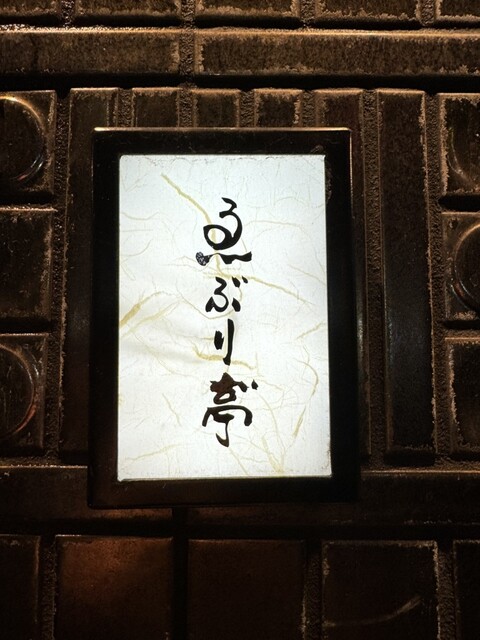 ゑぶり亭